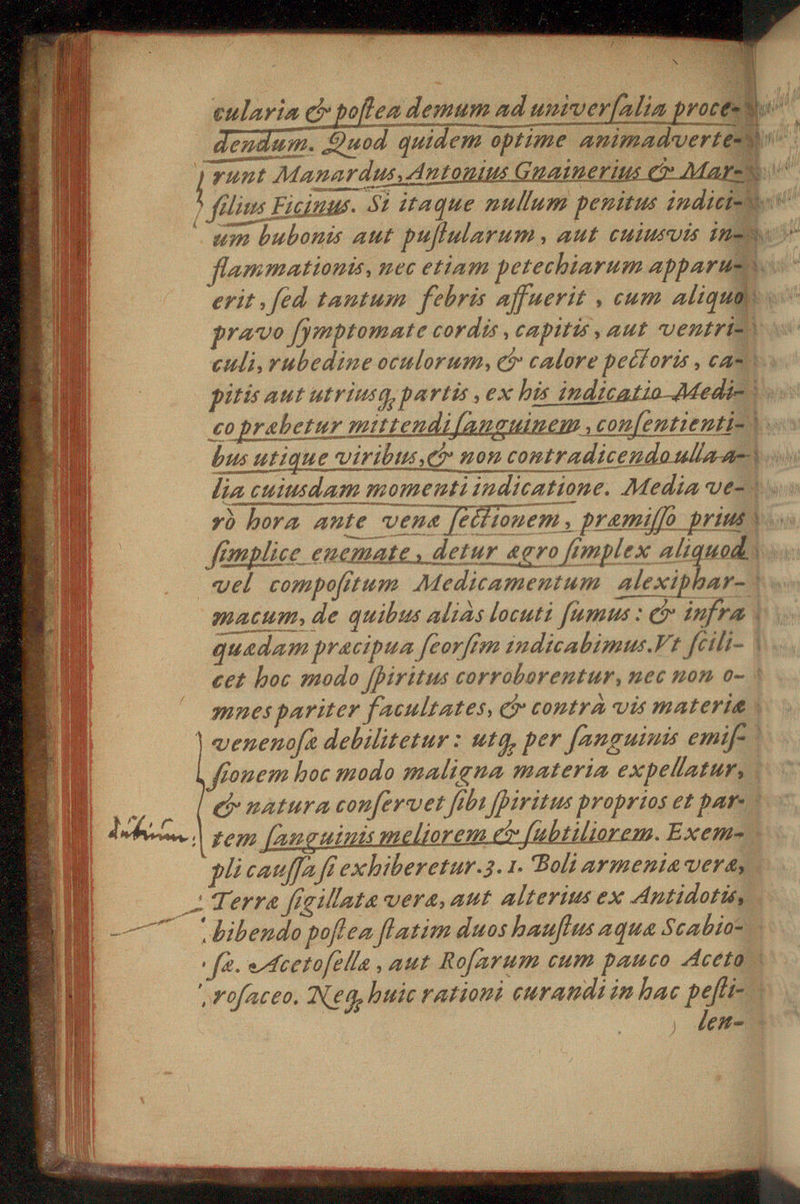 cularia & postea demum ad universalia proce-
dendum. Quod quidem optime animadverte-
runt Manardus, Antonius Guainerius & Mar-
silius Ficinus. Si itaque nullum penitus indici-
um bubonis aut pustularum, aut cuiusvis in-
flammationis, nec etiam petechiarum apparu-
erit, sed tantum febris affuerit, cum aliquo
pravo symptomate cordis, capitis, aut ventri-
culi, rubedine oculorum, & calore pectoris, ca-
pitis aut utriusq; partis, ex his indicatio Medi-
co præbetur mittendi sanguinem, consentienti-
bus utique viribus, & non contradicendo ulla a-
lia cuiusdam momenti indicatione. Media ve-
rò hora ante venæ sectionem, præmisso prius
simplice enemate, detur ægro simplex aliquod
vel compositum Medicamentum alexiphar-
macum, de quibus aliàs locuti sumus: & infra
quædam præcipua seorsim indicabimus. Vt scili-
cet hoc modo spiritus corroborentur, nec non o-
mnes pariter facultates, & contrà vis materiæ
venenosæ debilitetur: utq; per sanguinis emis-
sionem hoc modo maligna materia expellatur,
& natura conservet sibi spiritus proprios et par-
tem sanguinis meliorem & subtiliorem. Exem-
pli caussa si exhiberetur. 3. 1. Boli armeniæ veræ,
Terræ sigillatæ veræ, aut alterius ex Antidotis,
bibendo postea statim duos haustus aquæ Scabio-
sæ. Acetosellæ, aut Rosarum cum pauco Aceto
rosaceo. Neq; huic rationi curandi in hac pesti-
len-